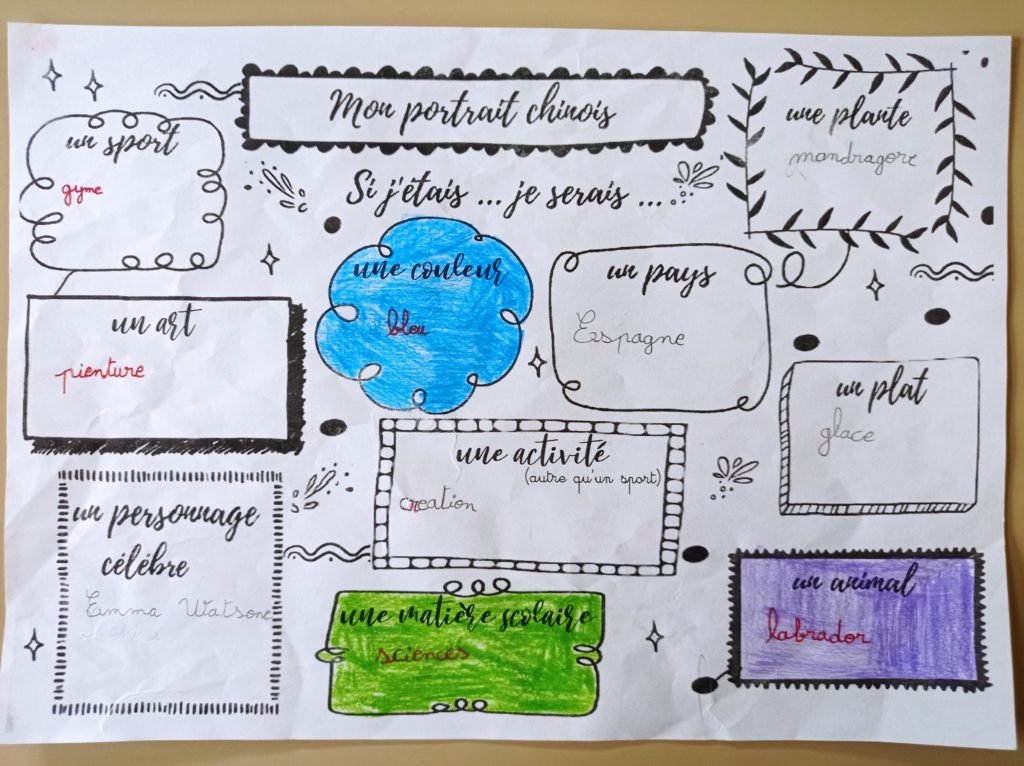 Mon portrait chinois
Si j'étais ... je serais ...
un sport
gyme
une plante
mandragore
une couleur
bleu
un pays
Espagne
un art
pienture
un plat
glace
une activité
(autre qu'un sport)
creation
un personnage
célèbre
Emma Watsone
une matière scolaire
sciences
un animal
labrador